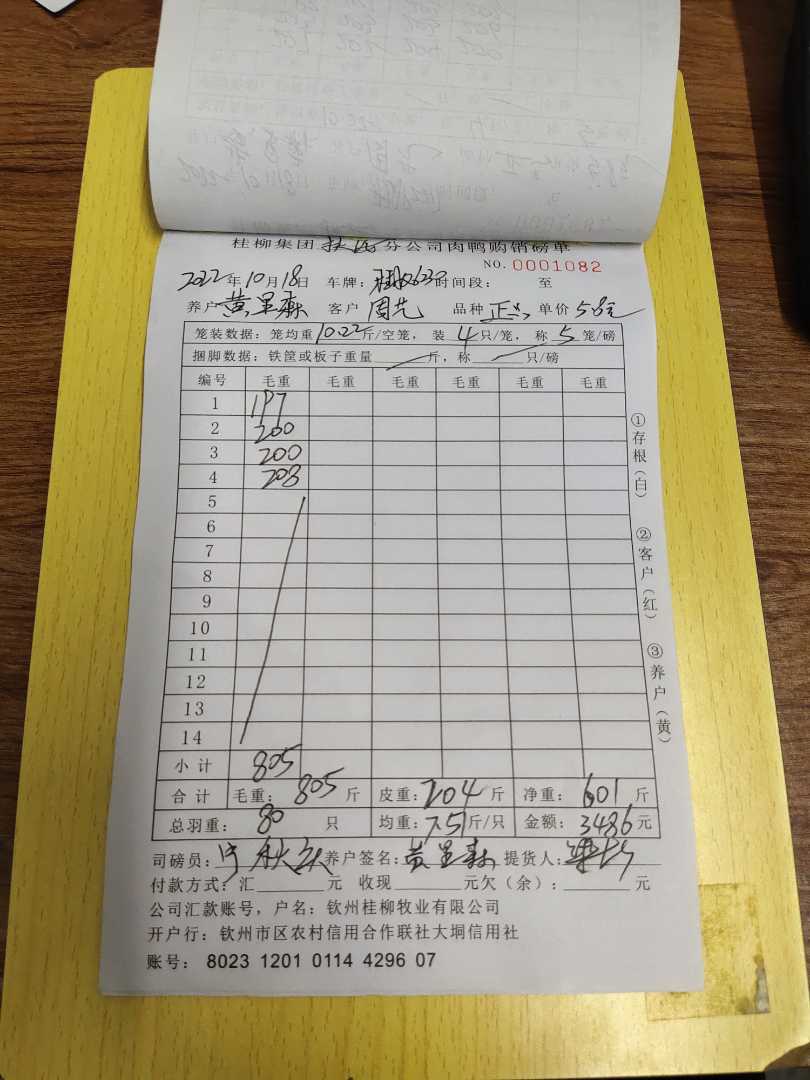 桂柳集团 分公司肉鸭购销磅单
NO. 0001082
2022年10月18日 车牌： 时间段： 至
养户 黄呈森 客户 周先 品种 单价 5.8元
笼装数据：笼均重10.22斤/空笼，装4只/笼，称5笼/磅
捆脚数据：铁筐或板子重量 斤，称 只/磅
编号 毛重 毛重 毛重 毛重 毛重 毛重
1 197
2 200
3 200
4 208
5
6
7
8
9
10
11
12
13
14
小计 805
合计 毛重：805斤 皮重：204斤 净重：601斤
总羽重：80只 均重：7.51斤/只 金额：3486元
司磅员： 养户签名：黄呈森 提货人：
付款方式：汇 元 收现 元欠（余）： 元
公司汇款账号，户名：钦州桂柳牧业有限公司
开户行：钦州市区农村信用合作联社大垌信用社
账号：8023 1201 0114 4296 07
①存根（白）
②客户（红）
③养户（黄）